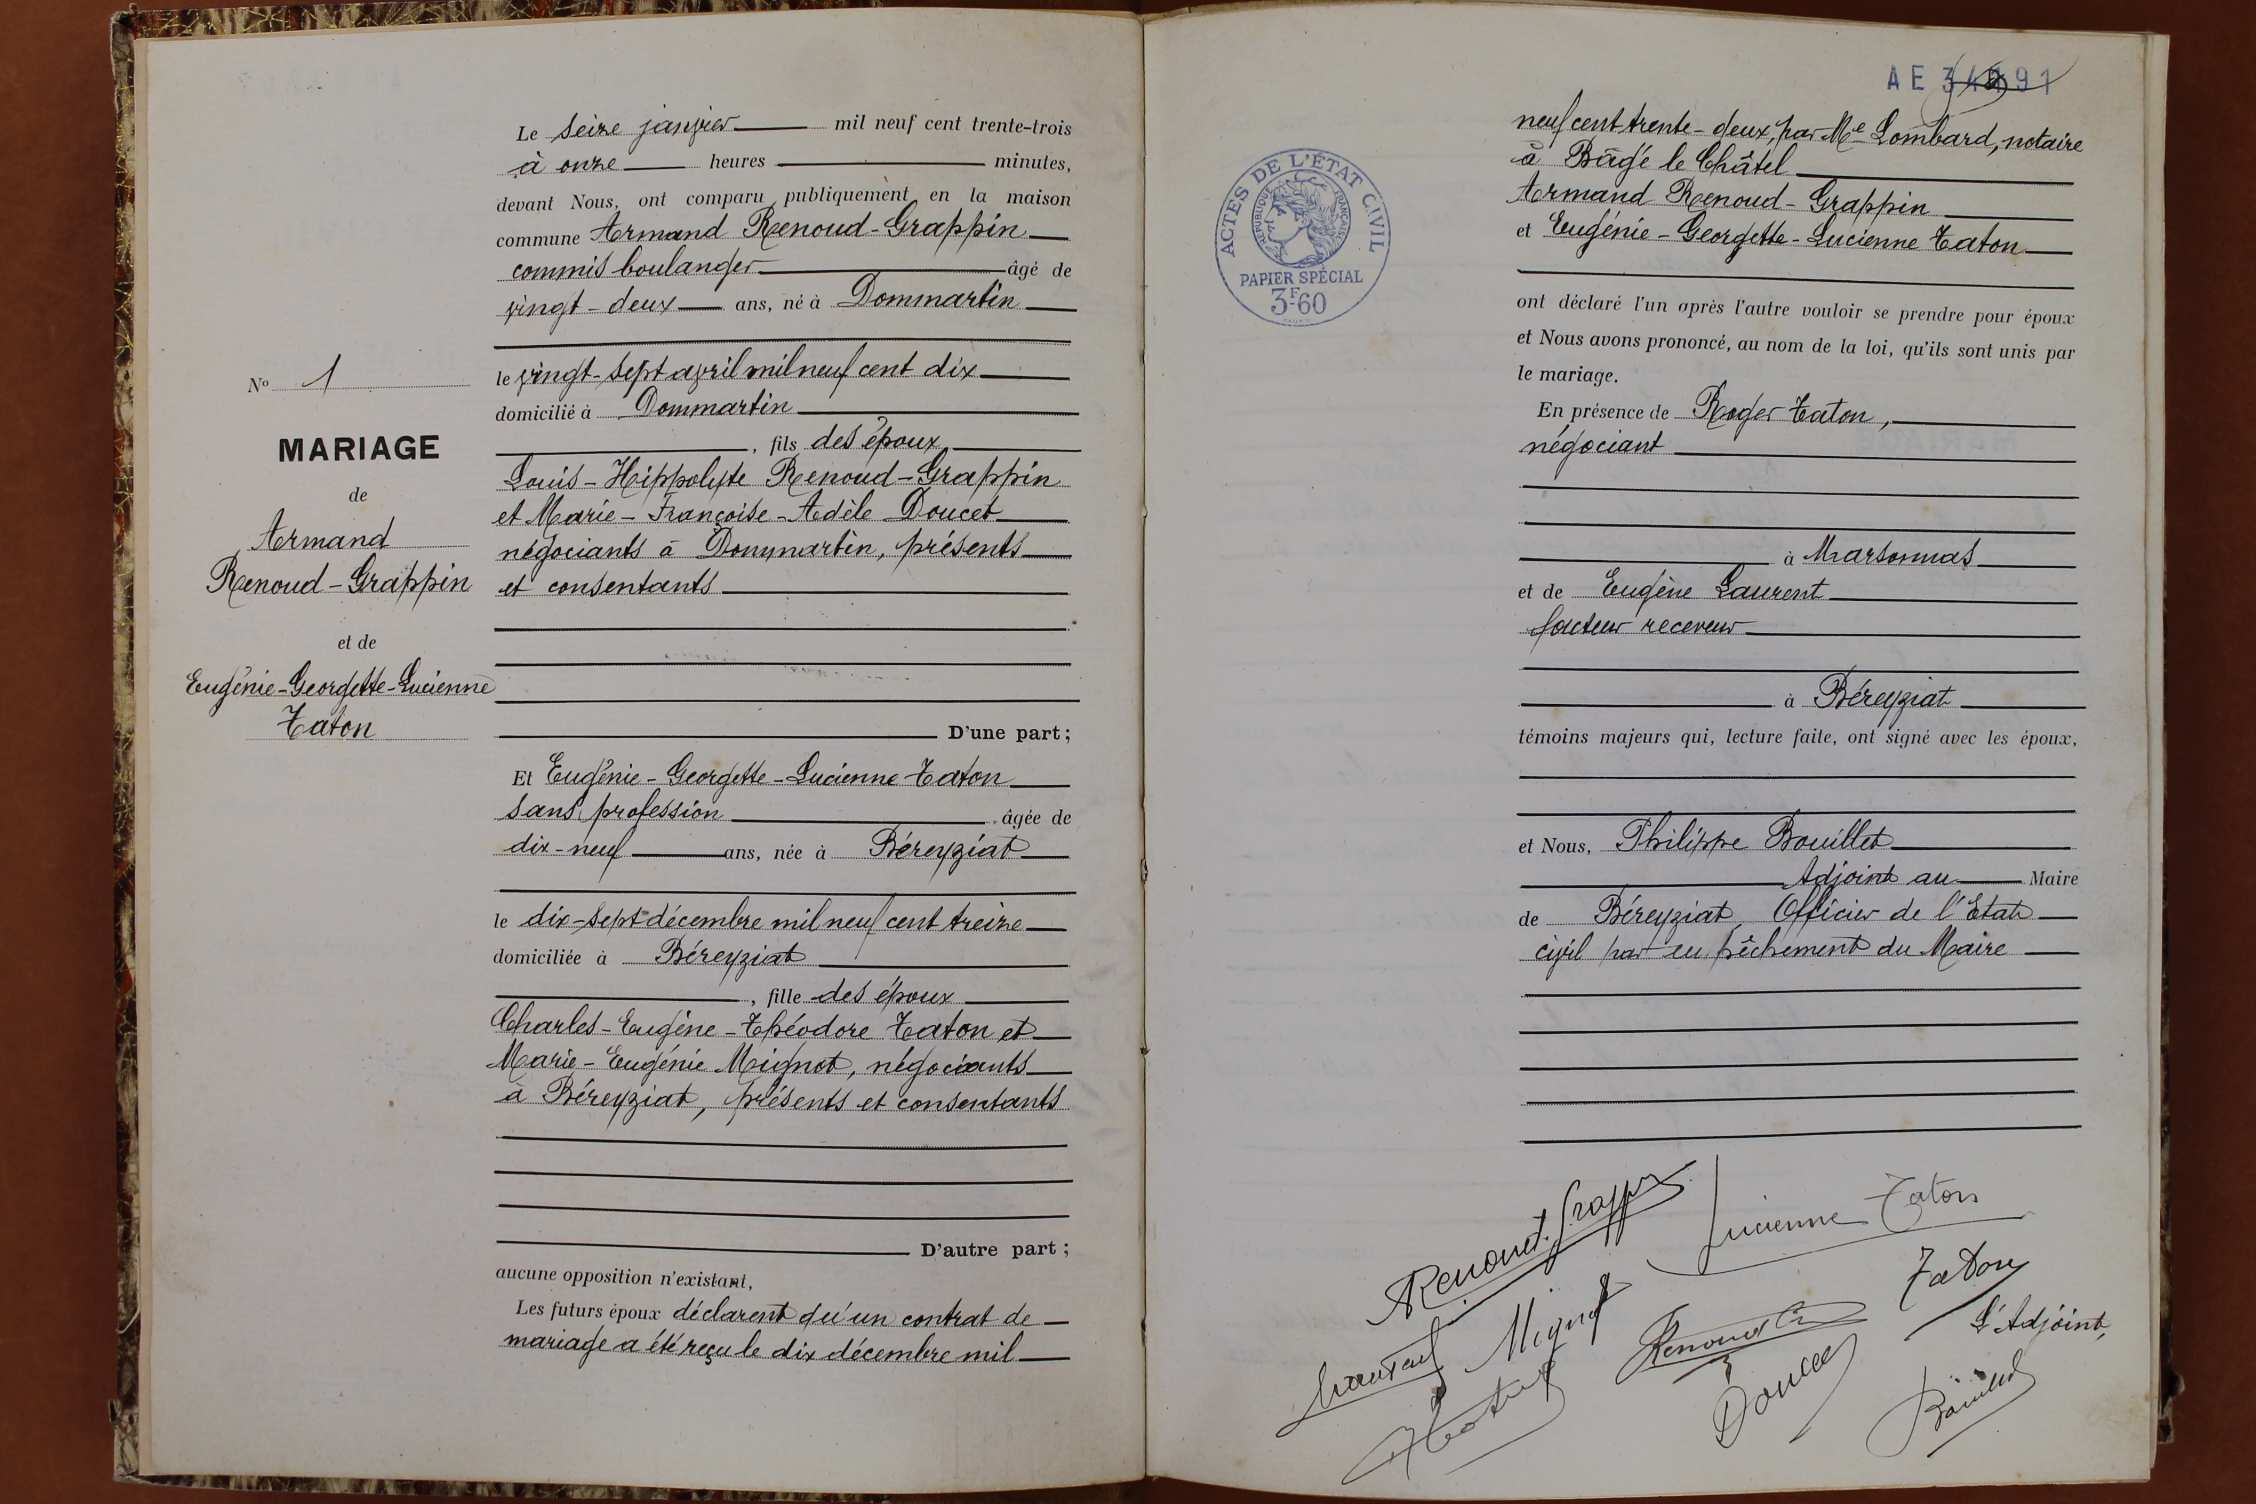 N° 1
MARIAGE
de
Armand
Renoud-Grappin
et de
Eugénie-Georgette-Lucienne
Taton
Le seize janvier mil neuf cent trente-trois
à onze heures minutes,
devant Nous, ont comparu publiquement en la maison
commune Armand Renoud-Grappin
commis boulanger âgé de
vingt-deux ans, né à Dommartin
le vingt-sept avril mil neuf cent dix
domicilié à Dommartin
, fils des époux
Louis-Hippolyte Renoud-Grappin
et Marie-Françoise-Adèle Doucet
négociants à Dommartin, présents
et consentants
D'une part;
Et Eugénie-Georgette-Lucienne Taton
sans profession âgée de
dix-neuf ans, née à Béreyziat
le dix-sept décembre mil neuf cent treize
domiciliée à Béreyziat
, fille des époux
Charles-Eugène-Théodore Taton et
Marie-Eugénie Mignot, négociants
à Béreyziat, présents et consentants
D'autre part;
aucune opposition n'existant,
Les futurs époux déclarent qu'un contrat de
mariage a été reçu le dix décembre mil
ACTES DE L'ÉTAT CIVIL
RÉPUBLIQUE FRANÇAISE
PAPIER SPÉCIAL
3F60
AE
neuf cent trente-deux, par Me Lombard, notaire
à Bâgé le Châtel
Armand Renoud-Grappin
et Eugénie-Georgette-Lucienne Taton
ont déclaré l'un après l'autre vouloir se prendre pour époux
et Nous avons prononcé, au nom de la loi, qu'ils sont unis par
le mariage.
En présence de Roger Taton,
négociant
à Marsonnas
et de Eugène Laurent
facteur receveur
à Béreyziat
témoins majeurs qui, lecture faite, ont signé avec les époux,
et Nous, Philippe Bouillet
Adjoint au Maire
de Béreyziat Officier de l'Etat
civil par empêchement du Maire
Renoud-Grappin
Lucienne Taton
Taton
Mignot
Renoud
Doucet
L'Adjoint,
Bouillet